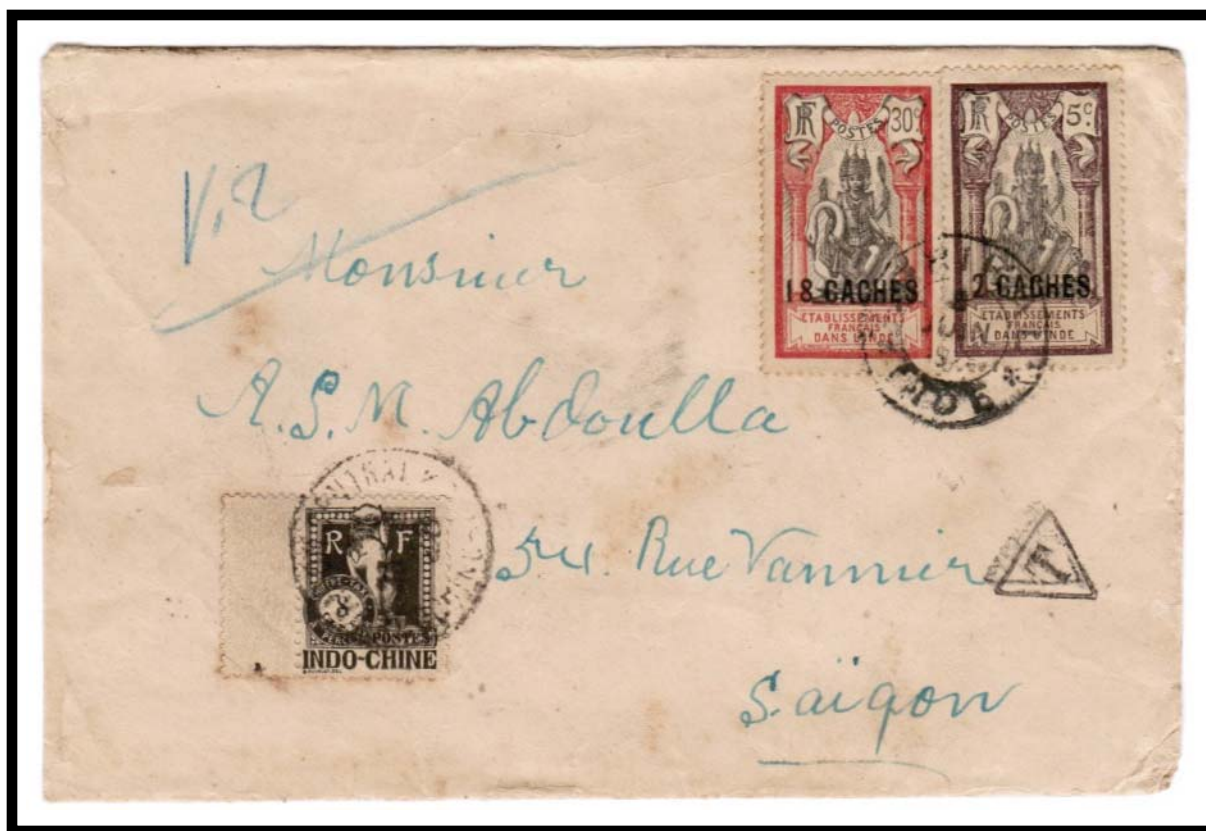 RF POSTES 30c
18 CACHES
ETABLISSEMENTS
FRANÇAIS
DANS L'INDE
RF POSTES 5c
2 CACHES
ETABLISSEMENTS
FRANÇAIS
DANS L'INDE
JUIN
INDE
Monsieur
A.S.M. Abdoulla
Rue Vannier
T
Saïgon
R F
8
POSTES
INDO-CHINE